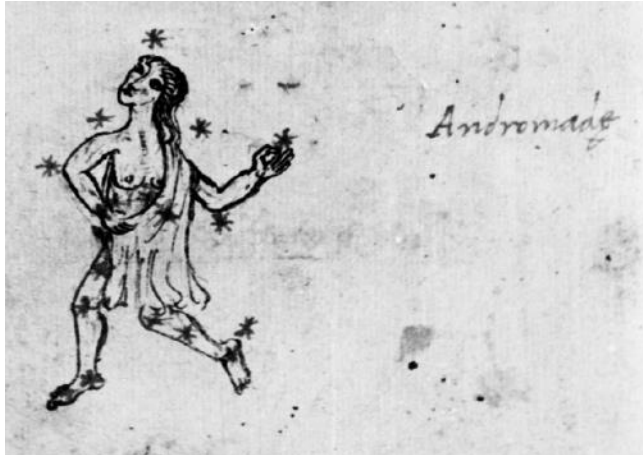 Andromadę